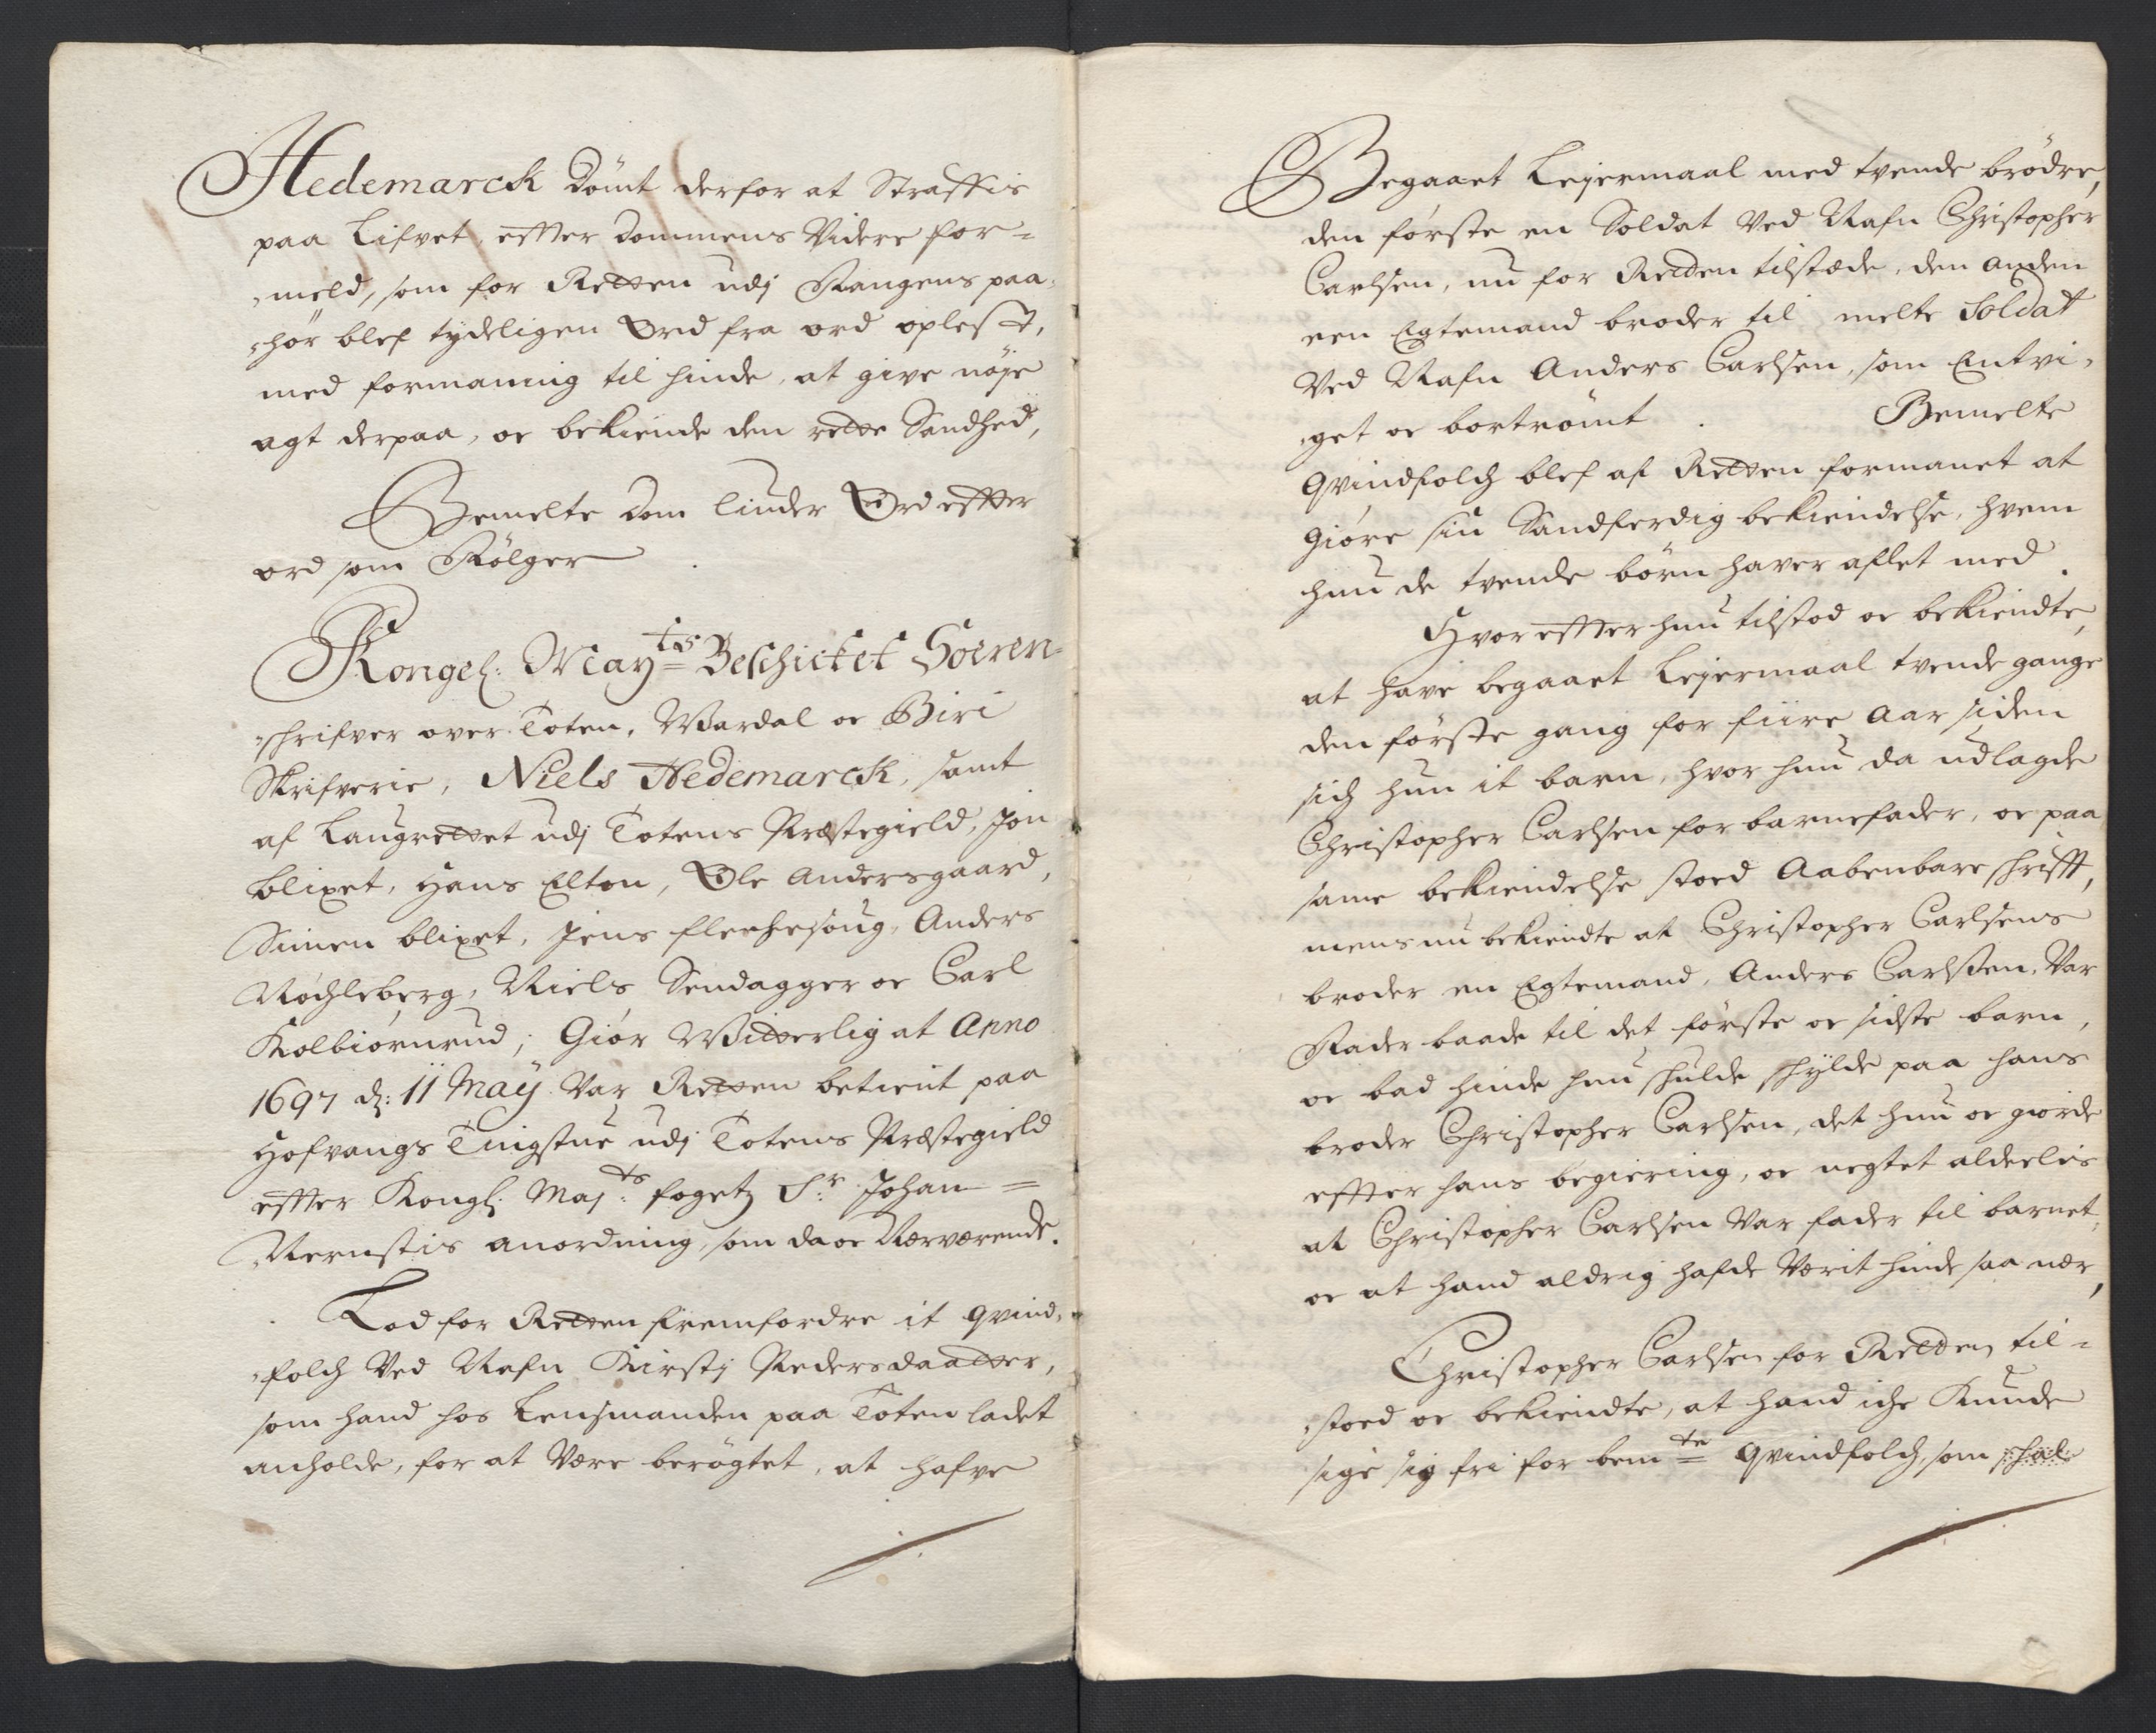 Hedemarck dömt derfor at Straffis
paa Lifvet, effter dommens Videre for=
meld, som for Retten udj Fangens paa-
hör blef tydeligen Ord fra ord oplest,
med formaning til hinde, at give nöje
agt derpaa, oc bekiende den rette Sandhed,
Bemelte dom liuder Ord effter
ord som Fölger
Kongel: May.ts Beschicket Soeren-
schrifver over Toten, Wardal oc Biri
Skrifverie, Niels Hedemarck, samt
af Laugrettet udj Totens Præstegield, Jon
blixet, Hans Elton, Ole Andersgaard,
Simen blixet, Jens Anders
Röchleberg, Niels Sendagger oc Carl
Kolbiörnrud; Giör Witterlig at Anno
1697 d: 11 Maÿ Var Retten betient paa
Hofvangs Tingstue udj Totens Præstegield
effter Kongl. Maj:ts fogetz Sr. Johan=
Nernstis anordning, som da oc Nærværende.
Lod for Retten fremfordre it qvind-
folch Ved Nafn Kirstj Pedersdaatter,
som hand hos Lensmanden paa Toten ladet
anholde, for at Være berögtet, at hafve
Begaaet Lejermaal med tvende brödre,
den förste en Soldat Ved Nafn Christopher
Carlsen, nu for Retten tilstæde, den anden
een Egtemand broder til melte Soldat
Ved Nafn Anders Carlsen, som Entvi-
get oc bortrömt Bemelte
qvindfolch blef af Retten formanet at
Giöre sin Sandferdig bekiendelse, hvem
hun de tvende börn haver aflet med.
Hvoreffter hun tilstod oc bekiendte,
at have begaaet Lejermaal tvende gange
den förste gang for fiire Aar siden
fich hun it barn, hvor hun da udlagde
Christopher Carlsen for barnefader, oc paa
same bekiendelse stoed Aabenbare schrifft,
mens nu bekiendte at Christopher Carlsens
broder en Egtemand, Anders Carlsen, Var
Fader baade til det förste oc sidste barn,
oc bad hinde hun schulde schylde paa hans
broder Christopher Carlsen, det hun oc giorde
effter hans begiering, oc negtet alderleis
at Christopher Carlsen Var fader til barnet,
oc at hand aldrig hafde Værit hinde saa nær,
Christopher Carlsen for Retten til=
stoed oc bekiendte, at hand iche Kunde
sige sig fri for bemte qvindfolch, som schal